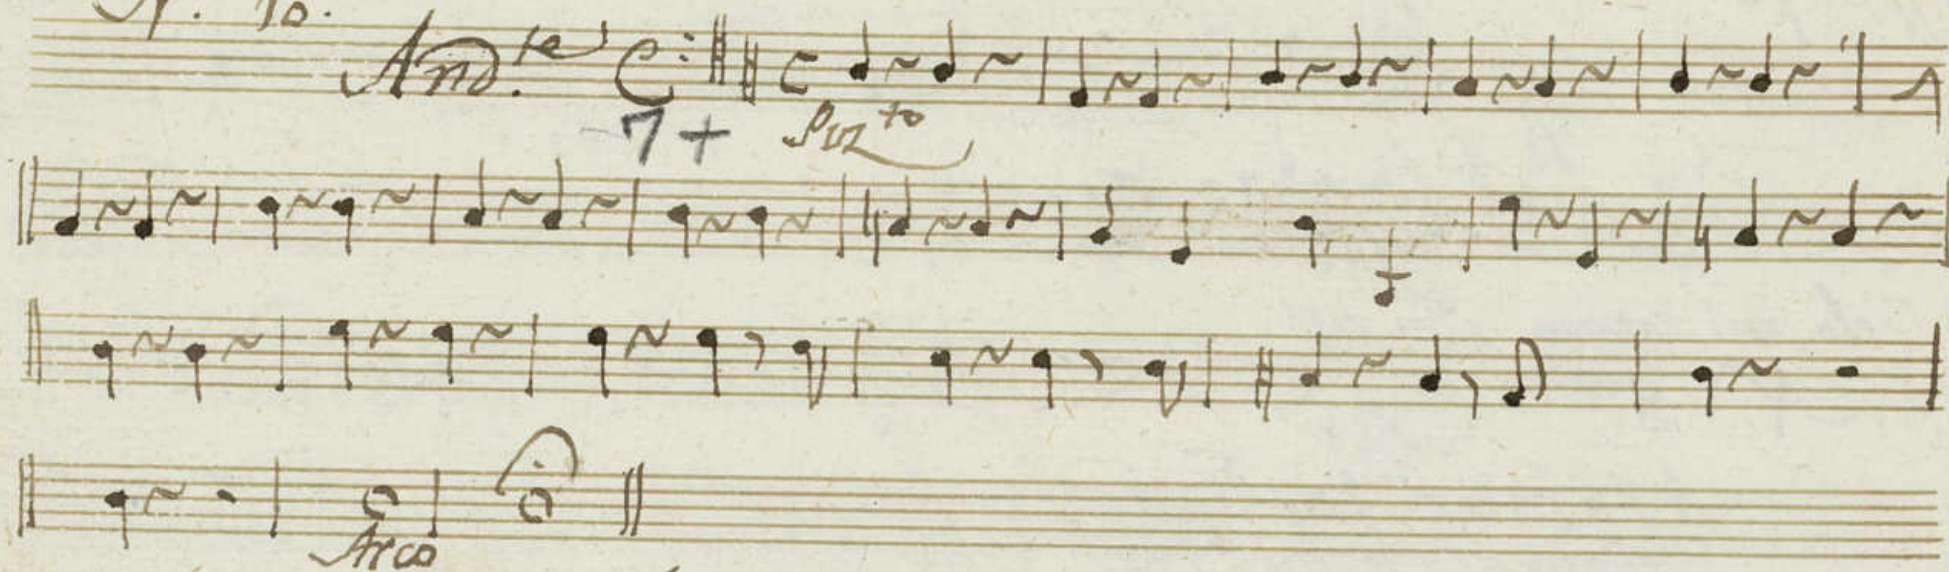 And.te
7 +
Piz.to
Arco